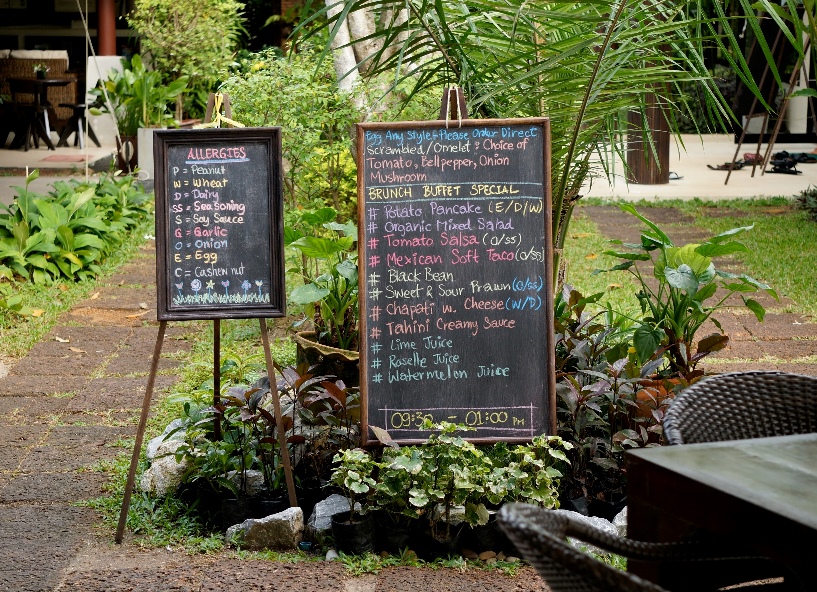 ALLERGIES
P = Peanut
W = Wheat
D = Dairy
SS = Seasoning
S = Soy Sauce
G = Garlic
O = Onion
E = Egg
C = Cashew nut
Egg Any Style & Please Order Direct
Scrambled/Omelet : Choice of
Tomato, Bellpepper, Onion
Mushroom
BRUNCH BUFFET SPECIAL
# Potato Pancake (E/D/W)
# Organic Mixed Salad
# Tomato Salsa (O/SS)
# Mexican Soft Taco (O/SS)
# Black Bean
# Sweet & Sour Prawn (O/SS)
# Chapati w. Cheese (W/D)
# Tahini Creamy Sauce
# Lime Juice
# Roselle Juice
# Watermelon Juice
09:30 - 01:00 PM